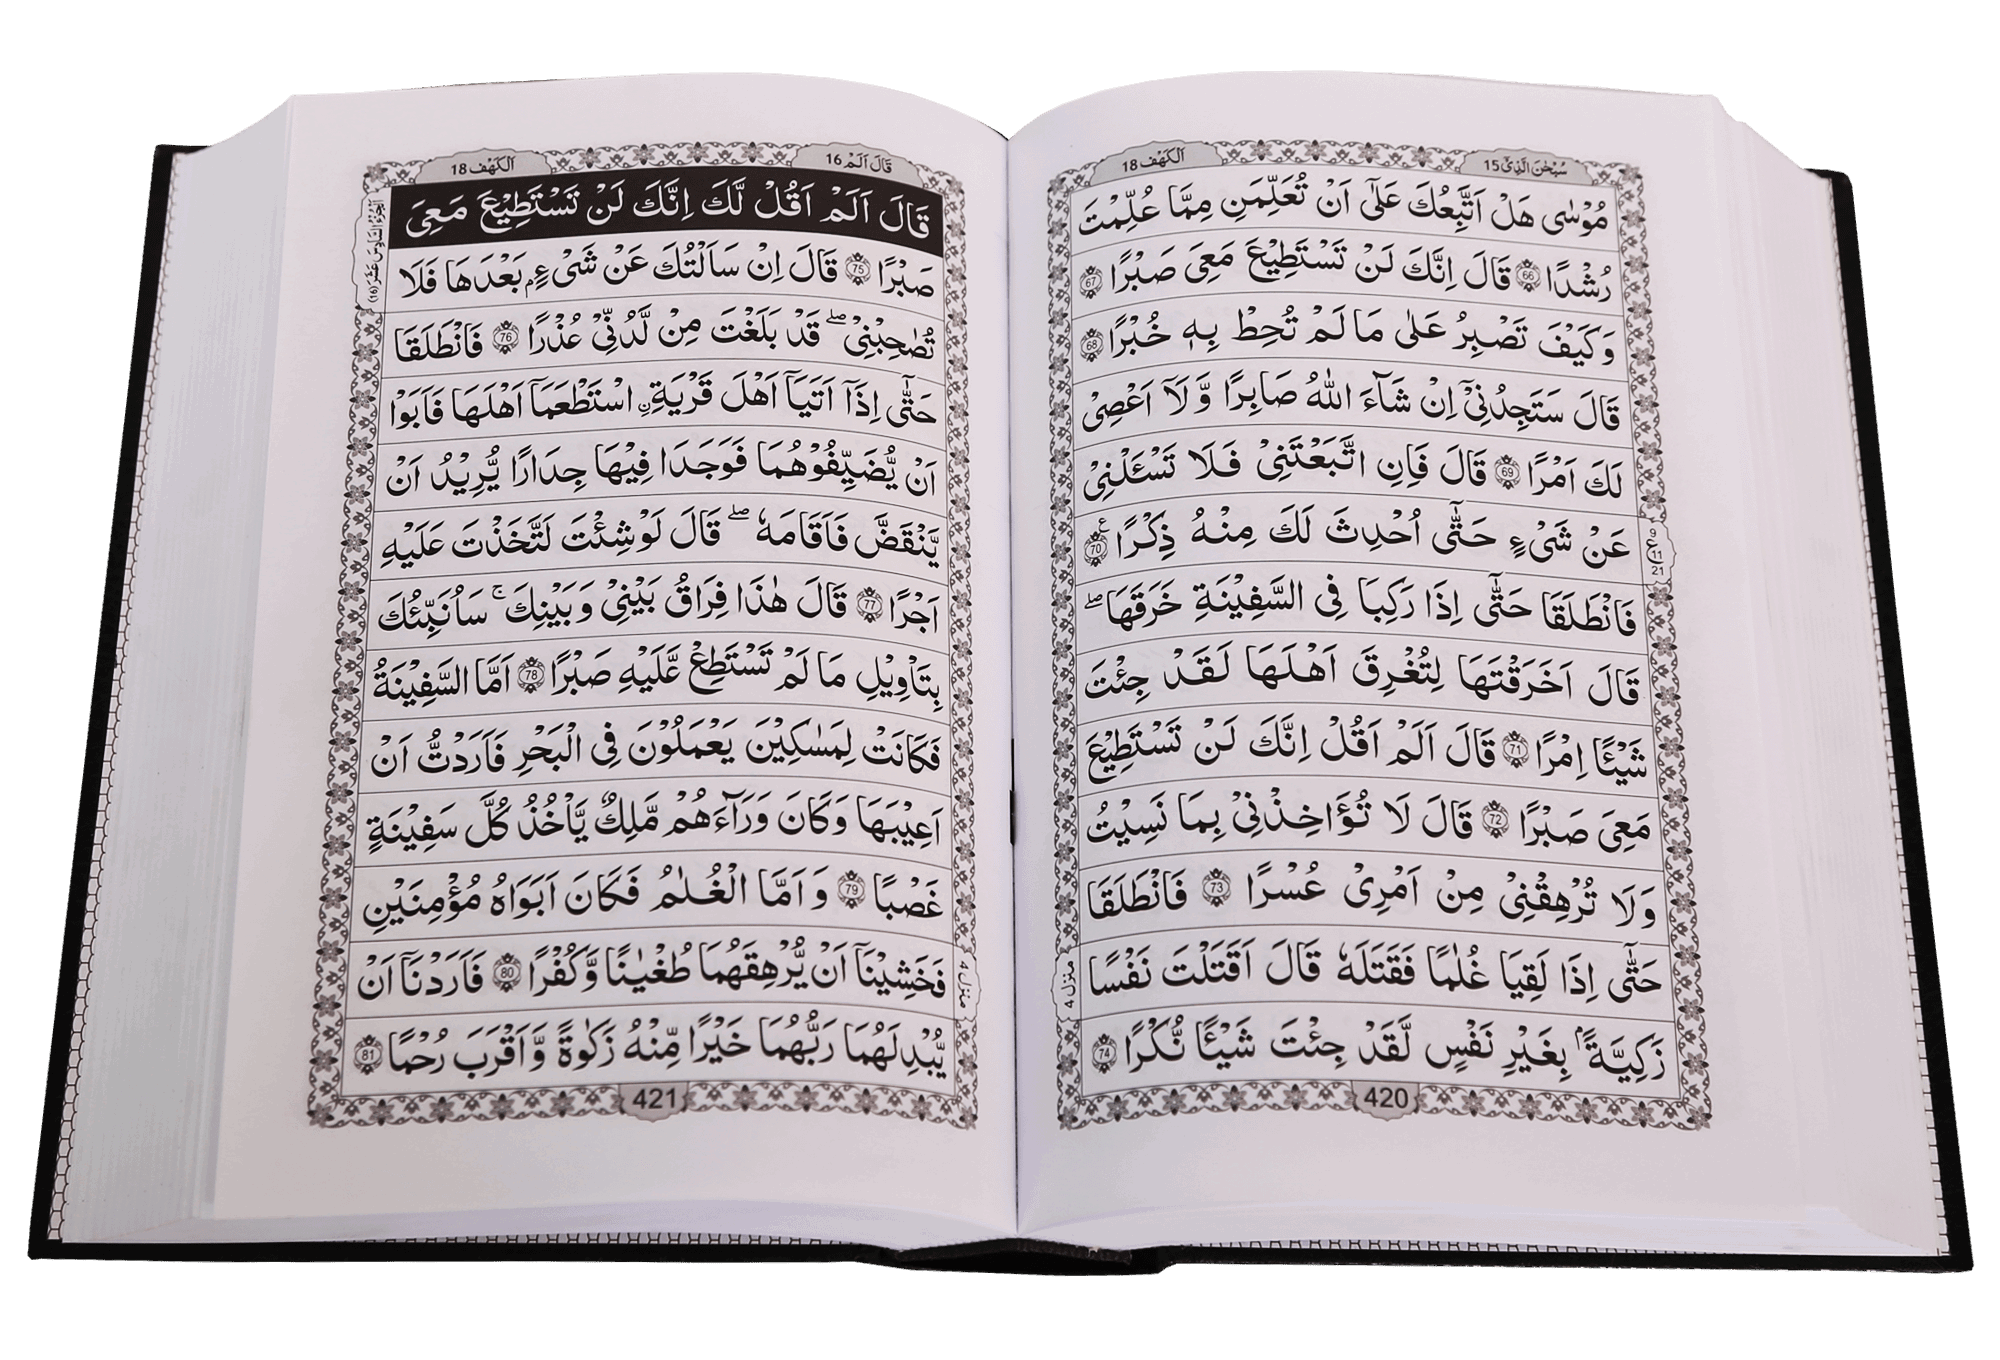 سُبْحٰنَ الَّذِیْۤ 15
اَلْكَهْف 18
مُوْسٰى هَلْ اَتَّبِعُكَ عَلٰۤى اَنْ تُعَلِّمَنِ مِمَّا عُلِّمْتَ
رُشْدًا 66 قَالَ اِنَّكَ لَنْ تَسْتَطِیْعَ مَعِیَ صَبْرًا 67
وَكَیْفَ تَصْبِرُ عَلٰى مَا لَمْ تُحِطْ بِهٖ خُبْرًا 68
قَالَ سَتَجِدُنِیْۤ اِنْ شَآءَ اللّٰهُ صَابِرًا وَّ لَاۤ اَعْصِیْ
لَكَ اَمْرًا 69 قَالَ فَاِنِ اتَّبَعْتَنِیْ فَلَا تَسْـَٔلْنِیْ
عَنْ شَیْءٍ حَتّٰۤى اُحْدِثَ لَكَ مِنْهُ ذِكْرًا ع 70
فَانْطَلَقَا حَتّٰۤى اِذَا رَكِبَا فِی السَّفِیْنَةِ خَرَقَهَا ؕ
قَالَ اَخَرَقْتَهَا لِتُغْرِقَ اَهْلَهَا لَقَدْ جِئْتَ
شَیْـًٔا اِمْرًا 71 قَالَ اَلَمْ اَقُلْ اِنَّكَ لَنْ تَسْتَطِیْعَ
مَعِیَ صَبْرًا 72 قَالَ لَا تُؤَاخِذْنِیْ بِمَا نَسِیْتُ
وَلَا تُرْهِقْنِیْ مِنْ اَمْرِیْ عُسْرًا 73 فَانْطَلَقَا
حَتّٰۤى اِذَا لَقِیَا غُلٰمًا فَقَتَلَهٗ قَالَ اَقَتَلْتَ نَفْسًا
زَكِیَّةًۢ بِغَیْرِ نَفْسٍ لَّقَدْ جِئْتَ شَیْـًٔا نُّكْرًا 74
9
ع 11
21
منزل 4
420
قَالَ اَلَمْ 16
اَلْكَهْف 18
اَلْجُزْءُ السَّادِسَ عَشَرَ (16)
قَالَ اَلَمْ اَقُلْ لَّكَ اِنَّكَ لَنْ تَسْتَطِیْعَ مَعِیَ
صَبْرًا 75 قَالَ اِنْ سَاَلْتُكَ عَنْ شَیْءٍۭ بَعْدَهَا فَلَا
تُصٰحِبْنِیْ ۚ قَدْ بَلَغْتَ مِنْ لَّدُنِّیْ عُذْرًا 76 فَانْطَلَقَا
حَتّٰۤى اِذَاۤ اَتَیَاۤ اَهْلَ قَرْیَةِ ِ۟اسْتَطْعَمَاۤ اَهْلَهَا فَاَبَوْا
اَنْ یُّضَیِّفُوْهُمَا فَوَجَدَا فِیْهَا جِدَارًا یُّرِیْدُ اَنْ
یَّنْقَضَّ فَاَقَامَهٗ ؕ قَالَ لَوْ شِئْتَ لَتَّخَذْتَ عَلَیْهِ
اَجْرًا 77 قَالَ هٰذَا فِرَاقُ بَیْنِیْ وَ بَیْنِكَ ۚ سَاُنَبِّئُكَ
بِتَاْوِیْلِ مَا لَمْ تَسْتَطِعْ عَّلَیْهِ صَبْرًا 78 اَمَّا السَّفِیْنَةُ
فَكَانَتْ لِمَسٰكِیْنَ یَعْمَلُوْنَ فِی الْبَحْرِ فَاَرَدْتُّ اَنْ
اَعِیْبَهَا وَكَانَ وَرَآءَهُمْ مَّلِكٌ یَّاْخُذُ كُلَّ سَفِیْنَةٍ
غَصْبًا 79 وَ اَمَّا الْغُلٰمُ فَكَانَ اَبَوَاهُ مُؤْمِنَیْنِ
فَخَشِیْنَاۤ اَنْ یُّرْهِقَهُمَا طُغْیَانًا وَّكُفْرًا 80 فَاَرَدْنَاۤ اَنْ
یُّبْدِلَهُمَا رَبُّهُمَا خَیْرًا مِّنْهُ زَكٰوةً وَّ اَقْرَبَ رُحْمًا 81
منزل 4
421